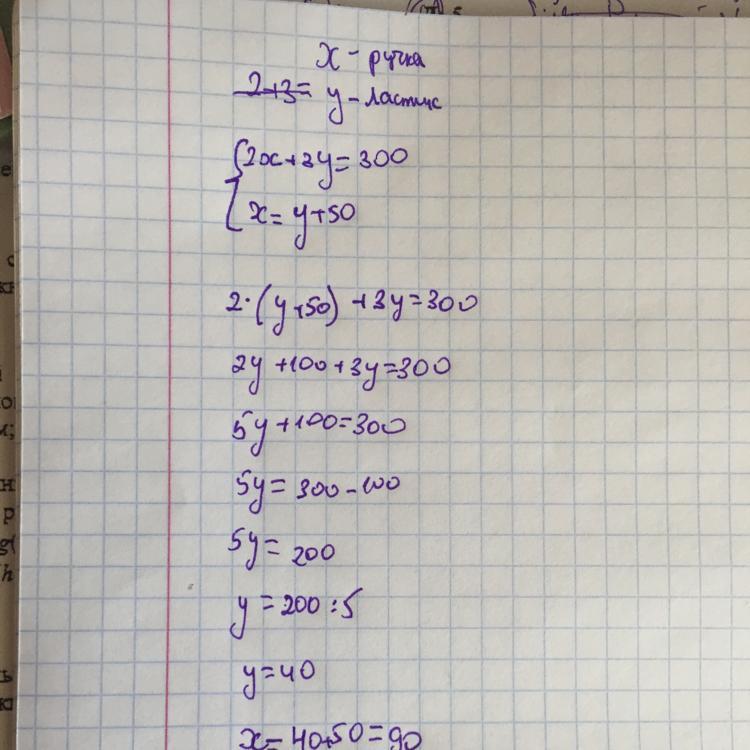 x - ручка
2+3= y - ластик
2x+3y=300
x= y+50
2·(y+50) +3y=300
2y+100+3y=300
5y+100=300
5y= 300-100
5y= 200
y=200:5
y=40
x= 40+50=90